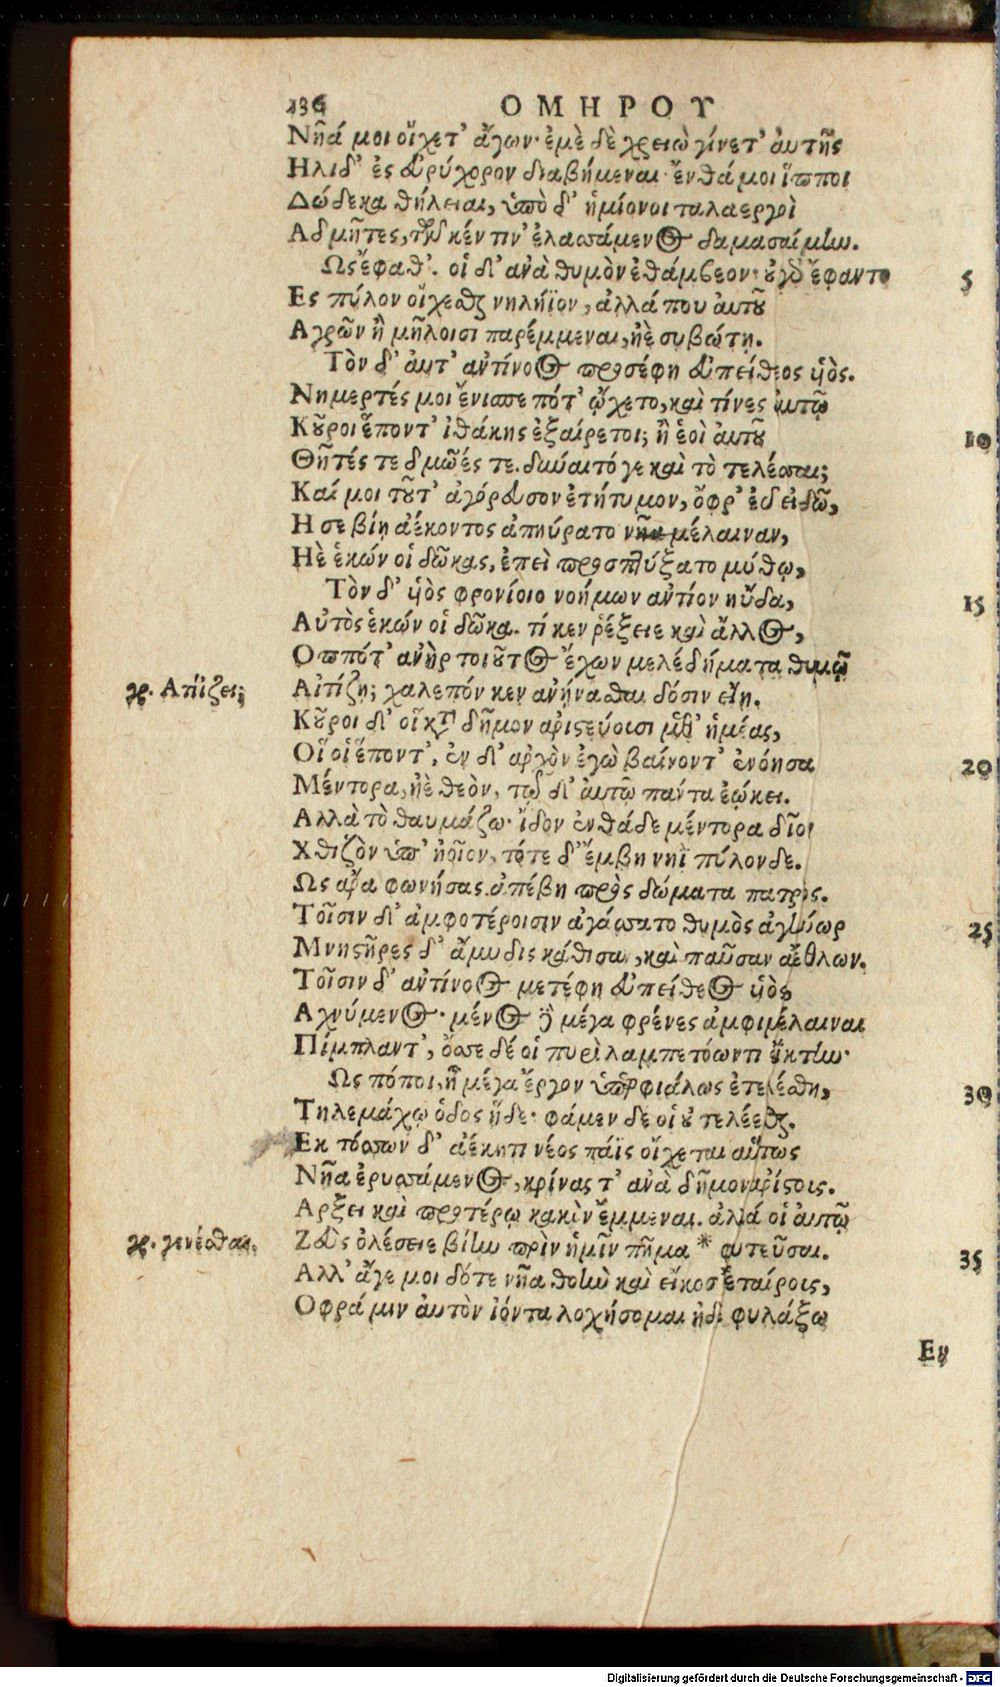 136 ΟΜΗΡΟΥ
Νῆά μοι οἴχετ' ἄγων· ἐμὲ δὲ χρειὼ γίνετ' αὐτῆς
Ηλιδ' ἐς εὐρύχορον διαβήμεναι· ἔνθά μοι ἵπποι
Δώδεκα θήλειαι, ὑπὸ δ' ἡμίονοι ταλαεργοὶ
Αδμῆτες, τῶν κέν τιν' ἐλασάμενος δαμασαίμην.
Ως ἔφαθ'. οἱ δ' ἀνὰ θυμὸν ἐθάμβεον· οὐ γὰρ ἔφαντο
5
Ες πύλον οἴχεσθαι νηλήϊον, ἀλλά που αὐτοῦ
Αγρῶν ἢ μῆλοισι παρέμμεναι, ἠὲ συβώτῃ.
Τὸν δ' αὖτ' ἀντίνοος προσέφη εὐπείθεος υἱός.
Νημερτές μοι ἔνισπε πότ' ᾤχετο, καὶ τίνες αὐτῷ
Κοῦροι ἕποντ' ἰθάκης ἐξαίρετοι; ἢ ἑοὶ αὐτοῦ
10
Θῆτές τε δμῶές τε. δύναιτό γε καὶ τὸ τελέσσαι;
Καί μοι τοῦτ' ἀγόρευσον ἐτήτυμον, ὄφρ' εὖ εἰδῶ,
Η σε βίῃ ἀέκοντος ἀπηύρατο νῆα μέλαιναν,
Ηὲ ἑκών οἱ δῶκας, ἐπεὶ προσπτύξατο μύθῳ,
Τὸν δ' υἱὸς φρονίοιο νοήμων ἀντίον ηὔδα,
15
Αὐτὸς ἑκών οἱ δῶκα. τί κεν ῥέξειε καὶ ἄλλος,
Οππότ' ἀνὴρ τοιοῦτος ἔχων μελεδήματα θυμῷ
γρ. Ατίζει;
Αἰτίζῃ; χαλεπόν κεν ἀνήνασθαι δόσιν εἴη.
Κοῦροι δ' οἳ κατὰ δῆμον ἀριστεύοισι μεθ' ἡμέας,
Οἵ οἱ ἕποντ', ἐν δ' ἀρχὸν ἐγὼ βαίνοντ' ἐνόησα
20
Μέντορα, ἠὲ θεὸν, τῷ δ' αὐτῷ πάντα ἐῴκει.
Αλλὰ τὸ θαυμάζω· ἴδον ἐνθάδε μέντορα δῖον
Χθιζὸν ὑπ' ἠοῖον, τότε δ' ἔμβη νηῒ πύλονδε.
Ως ἄρα φωνήσας ἀπέβη πρὸς δώματα πατρὸς.
Τοῖσιν δ' ἀμφοτέροισιν ἀγάσσατο θυμὸς ἀγήνωρ
25
Μνηστῆρες δ' ἄμυδις κάθισαν, καὶ παῦσαν ἀέθλων.
Τοῖσιν δ' ἀντίνοος μετέφη εὐπείθεος υἱὸς
Αχνύμενος· μένος δὲ μέγα φρένες ἀμφιμέλαιναι
Πίμπλαντ', ὄσσε δέ οἱ πυρὶ λαμπετόωντι ἐΐκτην·
Ως πόποι, ἦ μέγα ἔργον ὑπερφιάλως ἐτελέσθη,
30
Τηλεμάχῳ ὁδὸς ἥδε· φάμεν δε οἱ οὐ τελέεσθαι.
Εκ τόσσων δ' ἀέκητι νέος πάϊς οἴχεται αὔτως
Νῆα ἐρυσσάμενος, κρίνας τ' ἀνὰ δῆμον ἀρίστοις.
Αρξει καὶ προτέρω κακὸν ἔμμεναι. ἀλλά οἱ αὐτῷ
γρ. γενέσθαι.
Ζεὺς ὀλέσειε βίην πρὶν ἡμῖν πῆμα * φυτεῦσαι.
35
Αλλ' ἄγε μοι δότε νῆα θοὴν καὶ εἴκοσ' ἑταίροις,
Οφρά μιν αὐτὸν ἰόντα λοχήσομαι ἠδὲ φυλάξω
Εν
Digitalisierung gefördert durch die Deutsche Forschungsgemeinschaft - DFG